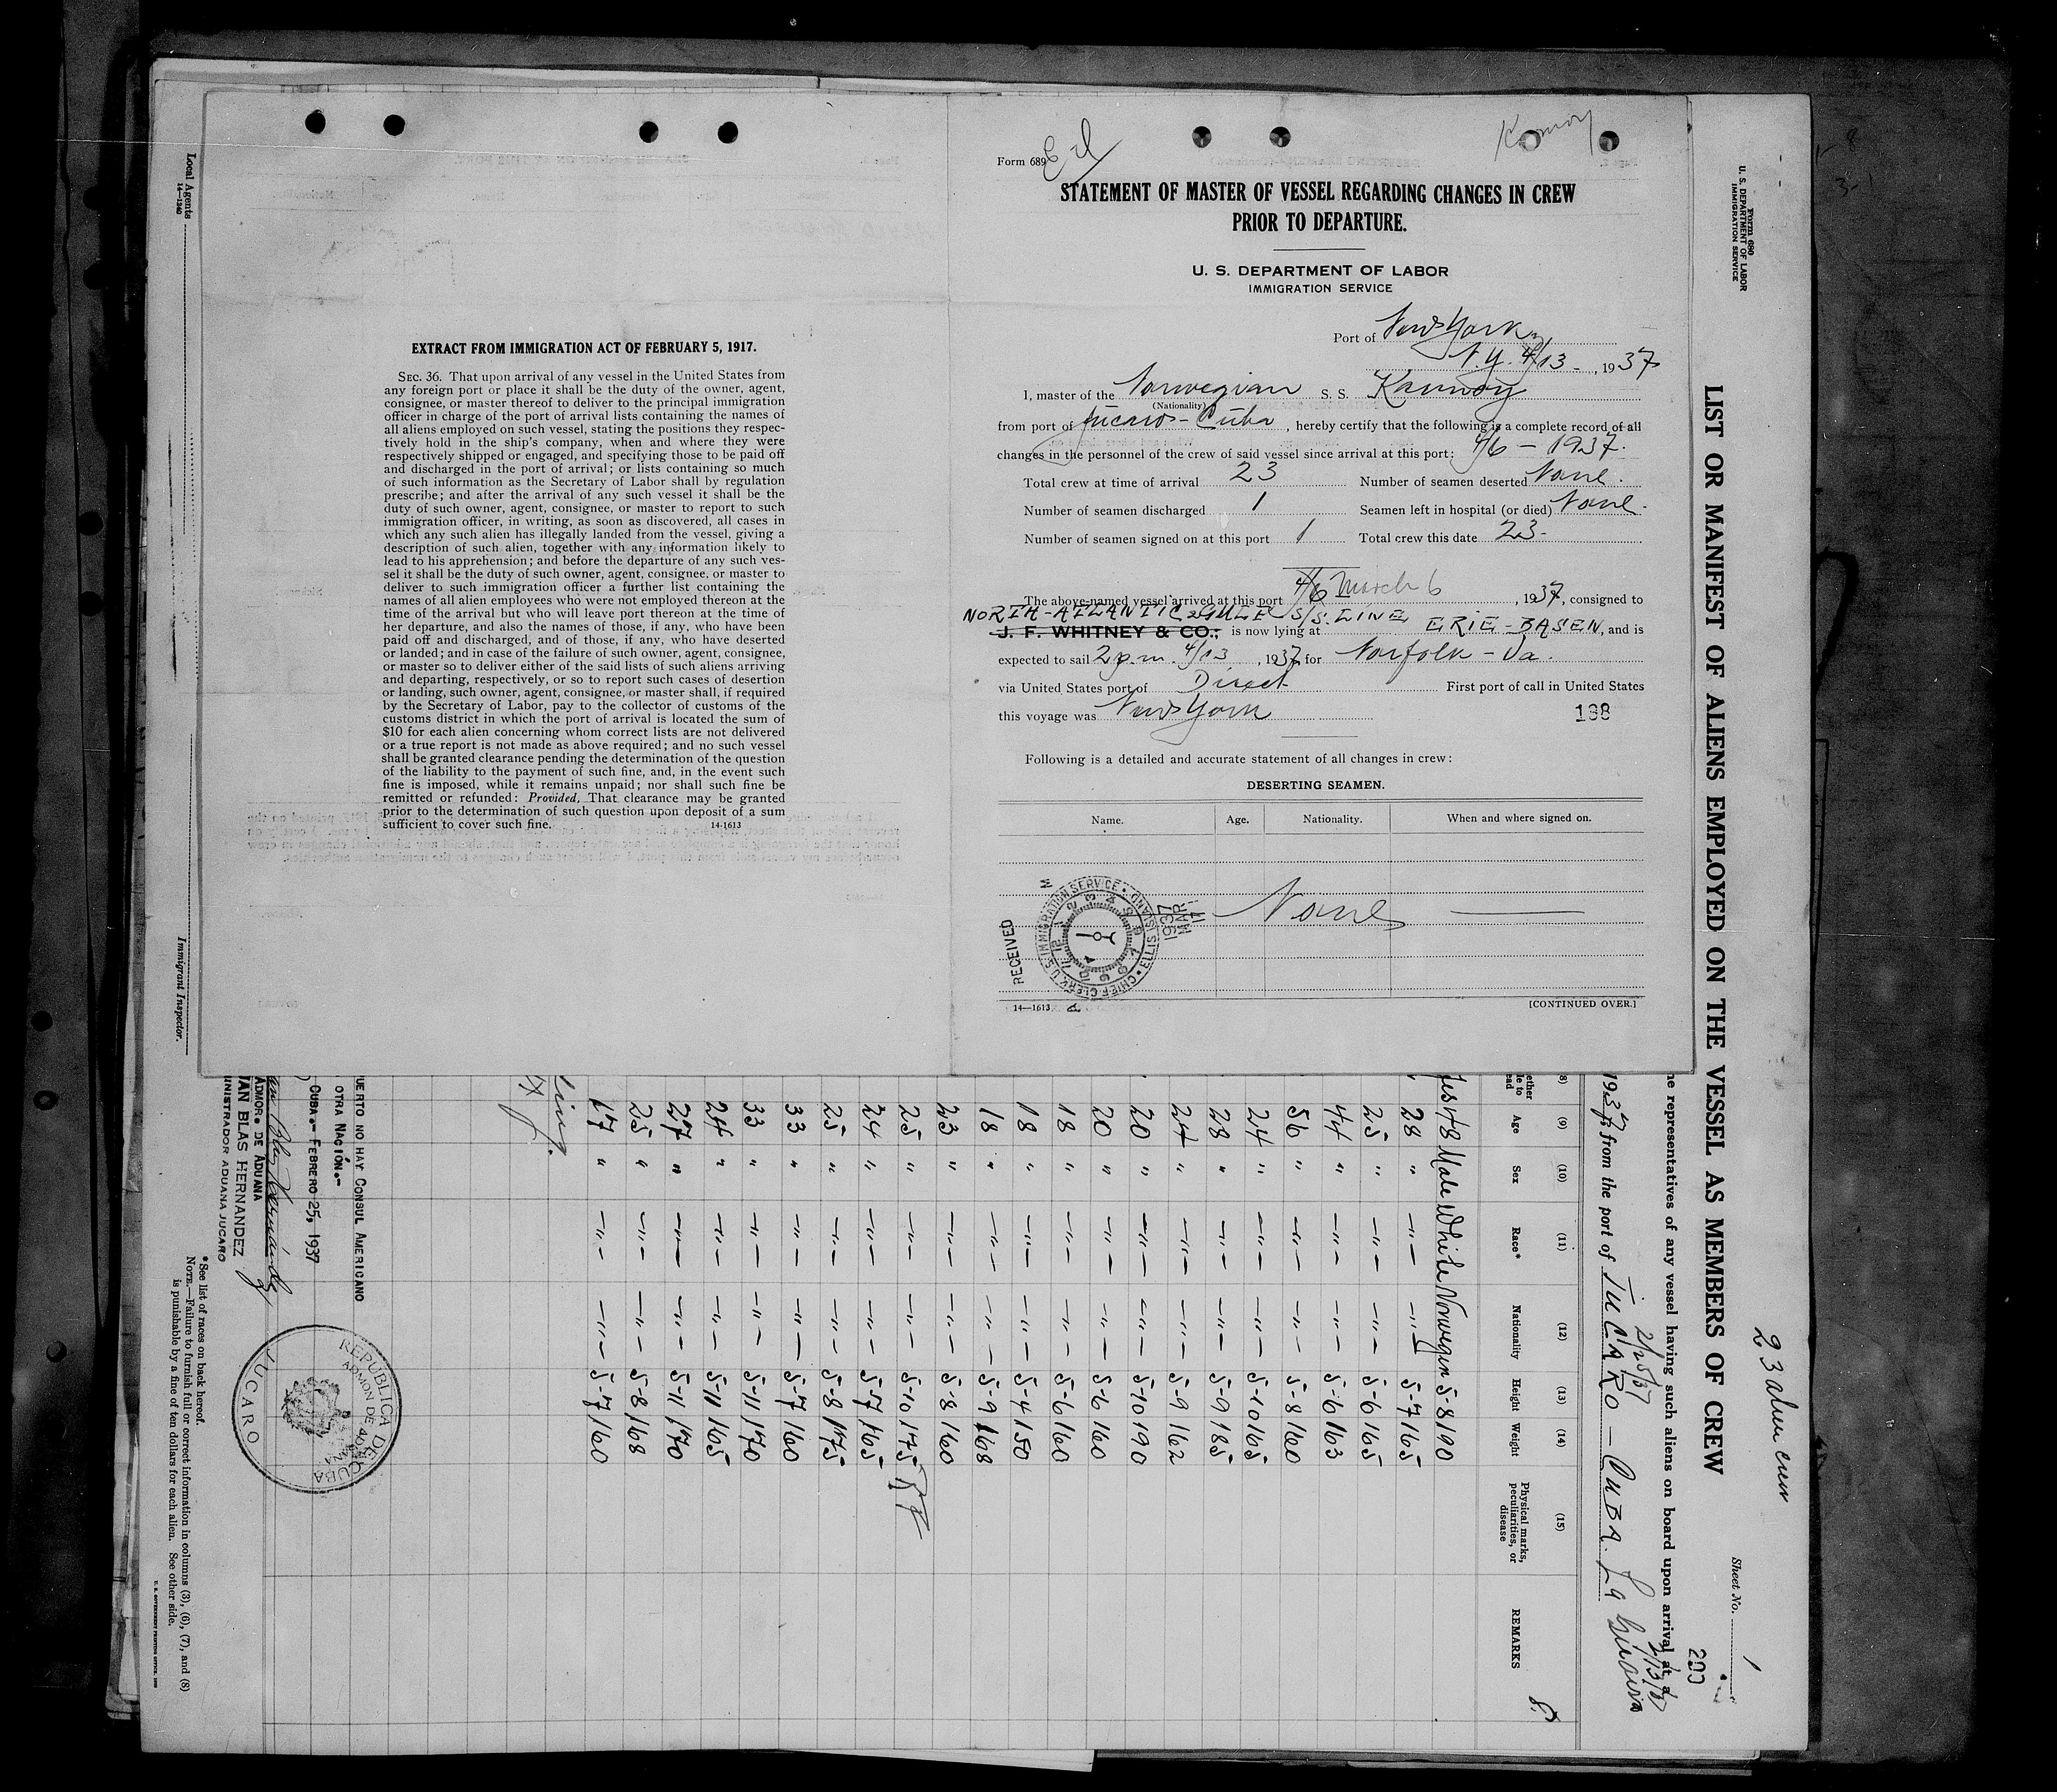 EXTRACT FROM IMMIGRATION ACT OF FEBRUARY 5, 1917.
SEC. 36. That upon arrival of any vessel in the United States from
any foreign port or place it shall be the duty of the owner, agent,
consignee, or master thereof to deliver to the principal immigration
officer in charge of the port of arrival lists containing the names of
all aliens employed on such vessel, stating the positions they respec-
tively hold in the ship's company, when and where they were
respectively shipped or engaged, and specifying those to be paid off
and discharged in the port of arrival; or lists containing so much
of such information as the Secretary of Labor shall by regulation
prescribe; and after the arrival of any such vessel it shall be the
duty of such owner, agent, consignee, or master to report to such
immigration officer, in writing, as soon as discovered, all cases in
which any such alien has illegally landed from the vessel, giving a
description of such alien, together with any information likely to
lead to his apprehension; and before the departure of any such ves-
sel it shall be the duty of such owner, agent, consignee, or master to
deliver to such immigration officer a further list containing the
names of all alien employees who were not employed thereon at the
time of the arrival but who will leave port thereon at the time of
her departure, and also the names of those, if any, who have been
paid off and discharged, and of those, if any, who have deserted
or landed; and in case of the failure of such owner, agent, consignee,
or master so to deliver either of the said lists of such aliens arriving
and departing, respectively, or so to report such cases of desertion
or landing, such owner, agent, consignee, or master shall, if required
by the Secretary of Labor, pay to the collector of customs of the
customs district in which the port of arrival is located the sum of
$10 for each alien concerning whom correct lists are not delivered
or a true report is not made as above required; and no such vessel
shall be granted clearance pending the determination of the question
of the liability to the payment of such fine, and, in the event such
fine is imposed, while it remains unpaid; nor shall such fine be
remitted or refunded: Provided, That clearance may be granted
prior to the determination of such question upon deposit of a sum
sufficient to cover such fine. 14-1613
Form 689
STATEMENT OF MASTER OF VESSEL REGARDING CHANGES IN CREW
PRIOR TO DEPARTURE.
U. S. DEPARTMENT OF LABOR
IMMIGRATION SERVICE
Port of New York
N.Y. 4/13 - , 1937
I, master of the Norwegian S. S. Karmoy
(Nationality)
from port of Jucaro - Cuba , hereby certify that the following is a complete record of all
changes in the personnel of the crew of said vessel since arrival at this port: 4/6 - 1937.
Total crew at time of arrival 23 Number of seamen deserted None.
Number of seamen discharged 1 Seamen left in hospital (or died) None.
Number of seamen signed on at this port 1 Total crew this date 23-
The above-named vessel arrived at this port 4/6 March 6 , 1937, consigned to
NORTH-ATLANTIC & GULF S/S. LINE
J. F. WHITNEY & CO., is now lying at ERIE-BASEN, and is
expected to sail 2 p.m. 4/13 , 1937, for Norfolk - Va.
via United States port of Direct First port of call in United States
this voyage was New York 198
Following is a detailed and accurate statement of all changes in crew:
DESERTING SEAMEN.
Name. Age. Nationality. When and where signed on.
None
RECEIVED
U.S. IMMIGRATION SERVICE • ELLIS ISLAND • CHIEF CLERK
1937 MAR
14—1613 [CONTINUED OVER.]
Form 680
U. S. DEPARTMENT OF LABOR
IMMIGRATION SERVICE
23 alien crew
Sheet No. 1
200
LIST OR MANIFEST OF ALIENS EMPLOYED ON THE VESSEL AS MEMBERS OF CREW
he representatives of any vessel having such aliens on board upon arrival at a
2/25/37
1937, from the port of JUCARO - CUBA. La Guaira
(8) (9) (10) (11) (12) (13) (14) (15)
Age Sex Race* Nationality Height Weight Physical marks, peculiarities, or disease REMARKS
Yes 48 Male White Norwegian 5-8 190
28 " -"- -"- 5-7 165
25 " -"- -"- 5-6 165
44 " -"- -"- 5-6 163
56 " -"- -"- 5-8 160
24 " -"- -"- 5-10 165
28 " -"- -"- 5-9 185
24 " -"- -"- 5-9 162
20 " -"- -"- 5-10 190
20 " -"- -"- 5-6 160
18 " -"- -"- 5-6 160
18 " -"- -"- 5-4 150
18 " -"- -"- 5-9 168
23 " -"- -"- 5-8 160
25 " -"- -"- 5-10 175
24 " -"- -"- 5-7 165
25 " -"- -"- 5-8 175
33 " -"- -"- 5-7 160
33 " -"- -"- 5-11 170
24 " -"- -"- 5-11 165
27 " -"- -"- 5-11 170
25 " -"- -"- 5-8 168
47 " -"- -"- 5-7 160
UERTO NO HAY CONSUL AMERICANO
OTRA NACIÓN.-
CUBA.- FEBRERO 25, 1937
ADMOR. DE ADUANA
AN BLAS HERNANDEZ
INISTRADOR ADUANA JUCARO
REPUBLICA DE CUBA
ADMON DE ADUANA
JUCARO
*See list of races on back hereof.
NOTE.—Failure to furnish full or correct information in columns (3), (6), (7), and (8)
is punishable by a fine of ten dollars for each alien. See other side.
Local Agents
14—1240
Immigrant Inspector.